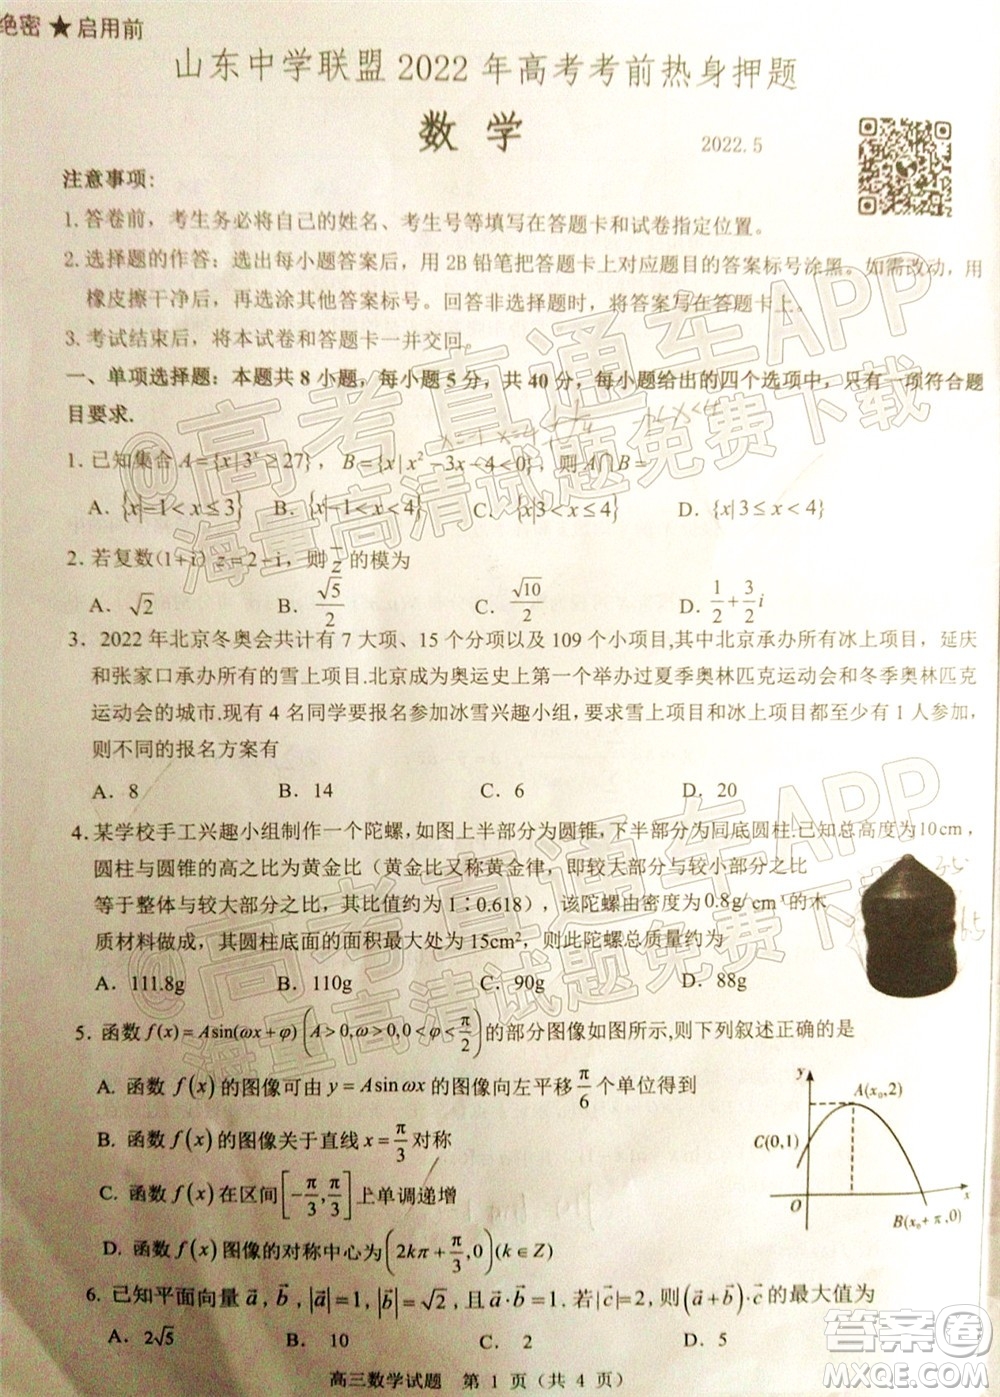 绝密★启用前
山东中学联盟 2022 年高考考前热身押题
数 学
2022.5
注意事项：
1. 答卷前，考生务必将自己的姓名、考生号等填写在答题卡和试卷指定位置。
2. 选择题的作答：选出每小题答案后，用 2B 铅笔把答题卡上对应题目的答案标号涂黑。如需改动，用
橡皮擦干净后，再选涂其他答案标号。回答非选择题时，将答案写在答题卡上。
3. 考试结束后，将本试卷和答题卡一并交回。
一、单项选择题：本题共 8 小题，每小题 5 分，共 40 分，每小题给出的四个选项中，只有一项符合题
目要求.
1. 已知集合 A={x|3^x≥27}，B={x|x²-3x-4<0}，则 A∩B=
A. {x|-1<x≤3} B. {x|-1<x<4} C. {x|3<x<4} D. {x|3≤x<4}
2. 若复数(1+i) z=2-i，则 z̄ 的模为
A. √2 B. √5/2 C. √10/2 D. 1/2+3/2 i
3. 2022 年北京冬奥会共计有 7 大项、15 个分项以及 109 个小项目,其中北京承办所有冰上项目，延庆
和张家口承办所有的雪上项目.北京成为奥运史上第一个举办过夏季奥林匹克运动会和冬季奥林匹克
运动会的城市.现有 4 名同学要报名参加冰雪兴趣小组,要求雪上项目和冰上项目都至少有 1 人参加,
则不同的报名方案有
A. 8 B. 14 C. 6 D. 20
4. 某学校手工兴趣小组制作一个陀螺，如图上半部分为圆锥，下半部分为同底圆柱.已知总高度为10cm，
圆柱与圆锥的高之比为黄金比（黄金比又称黄金律，即较大部分与较小部分之比
等于整体与较大部分之比，其比值约为 1∶0.618），该陀螺由密度为0.8g/cm³的木
质材料做成，其圆柱底面的面积最大处为 15cm²，则此陀螺总质量约为
A. 111.8g B. 110g C. 90g D. 88g
5. 函数 f(x)=Asin(ωx+φ)(A>0,ω>0,0<φ<π/2)的部分图像如图所示,则下列叙述正确的是
A. 函数 f(x) 的图像可由 y=Asinωx 的图像向左平移 π/6 个单位得到
B. 函数 f(x) 的图像关于直线 x=π/3 对称
C. 函数 f(x) 在区间 [-π/3,π/3] 上单调递增
D. 函数 f(x) 图像的对称中心为 (2kπ+π/3,0)(k∈Z)
y
A(x₀,2)
C(0,1)
O
x
B(x₀+π,0)
6. 已知平面向量 a⃗，b⃗，|a⃗|=1，|b⃗|=√2，且 a⃗·b⃗=1. 若|c⃗|=2，则(a⃗+b⃗)·c⃗ 的最大值为
A. 2√5 B. 10 C. 2 D. 5
高三数学试题 第 1 页（共 4 页）
@高考直通车APP
海量高清试题免费下载
@高考直通车APP
海量高清试题免费下载
答案圈
MXQE.COM